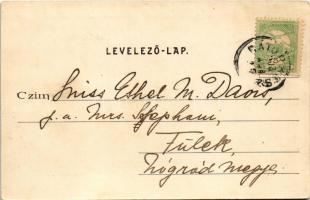 LEVELEZŐ-LAP.
Czim Miss Ethel M. Davis,
p. a. Mrs. Stephani,
Fülek,
Nógrád megye.